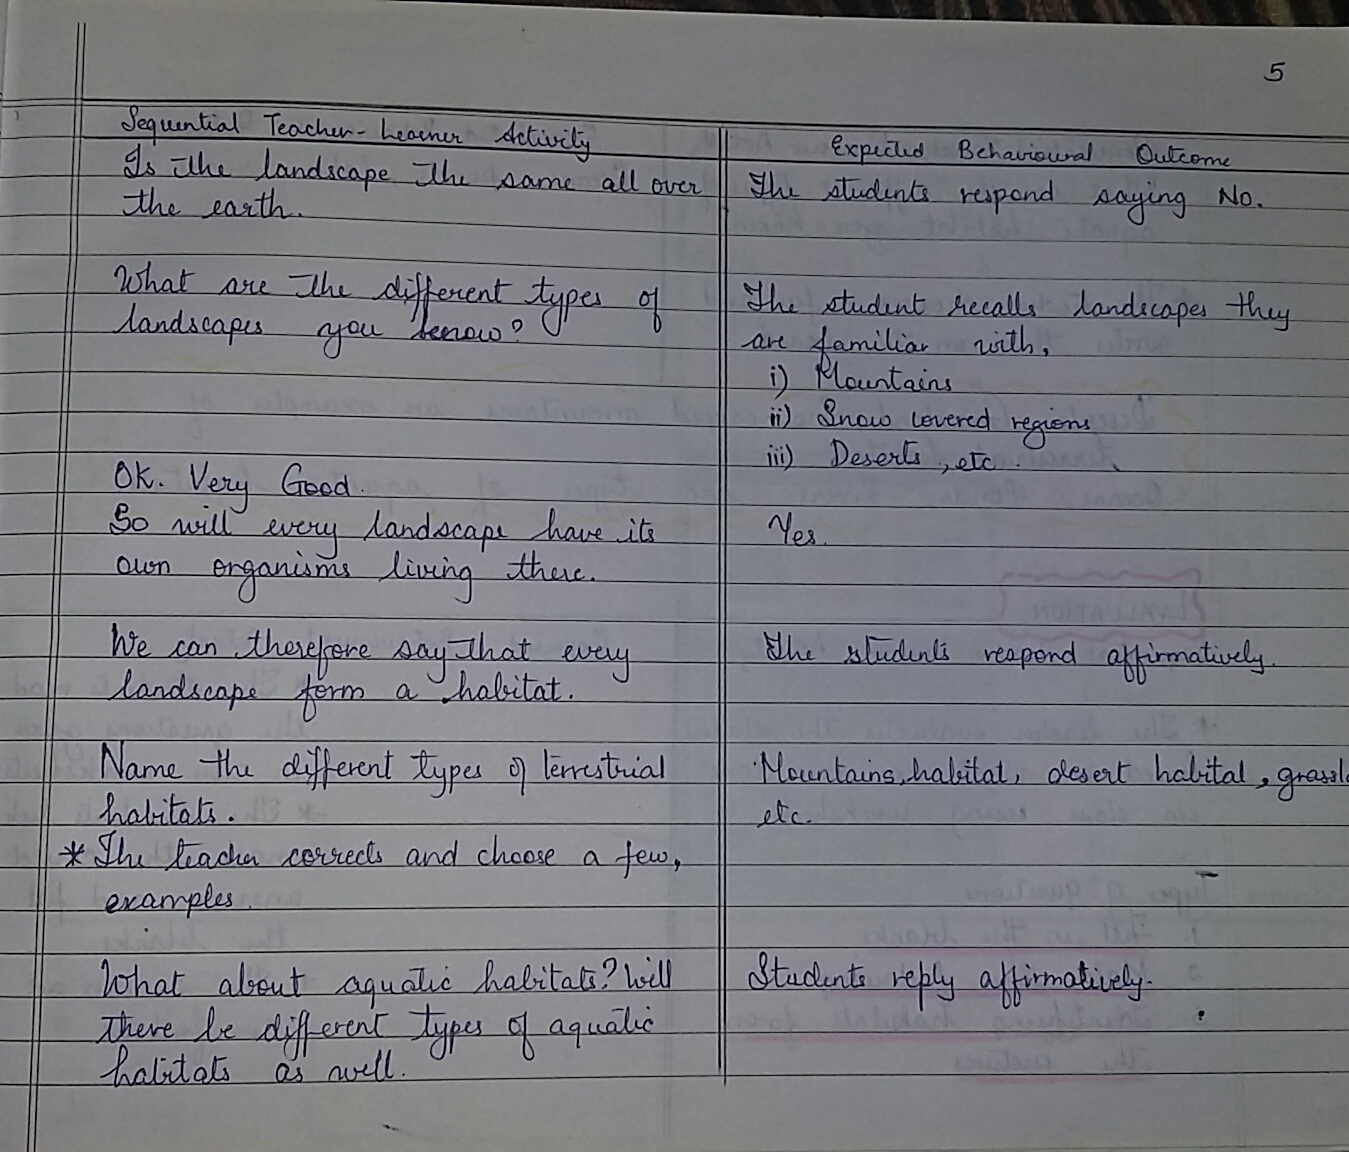 5
Sequential Teacher-Learner Activity
Expected Behavioural Outcome
Is the landscape the same all over
the earth.
The students respond saying No.
What are the different types of
landscapes you know?
The student recalls landscapes they
are familiar with,
i) Mountains
ii) Snow covered regions
iii) Deserts, etc.
OK. Very Good.
So will every landscape have its
own organisms living there.
Yes.
We can therefore say that every
landscape form a habitat.
The students respond affirmatively.
Name the different types of terrestrial
habitats.
Mountains, habitat, desert habital,
etc.
* The teacher corrects and choose a few,
examples.
What about aquatic habitats? Will
there be different types of aquatic
habitats as well.
Students reply affirmatively.
EVALUATION